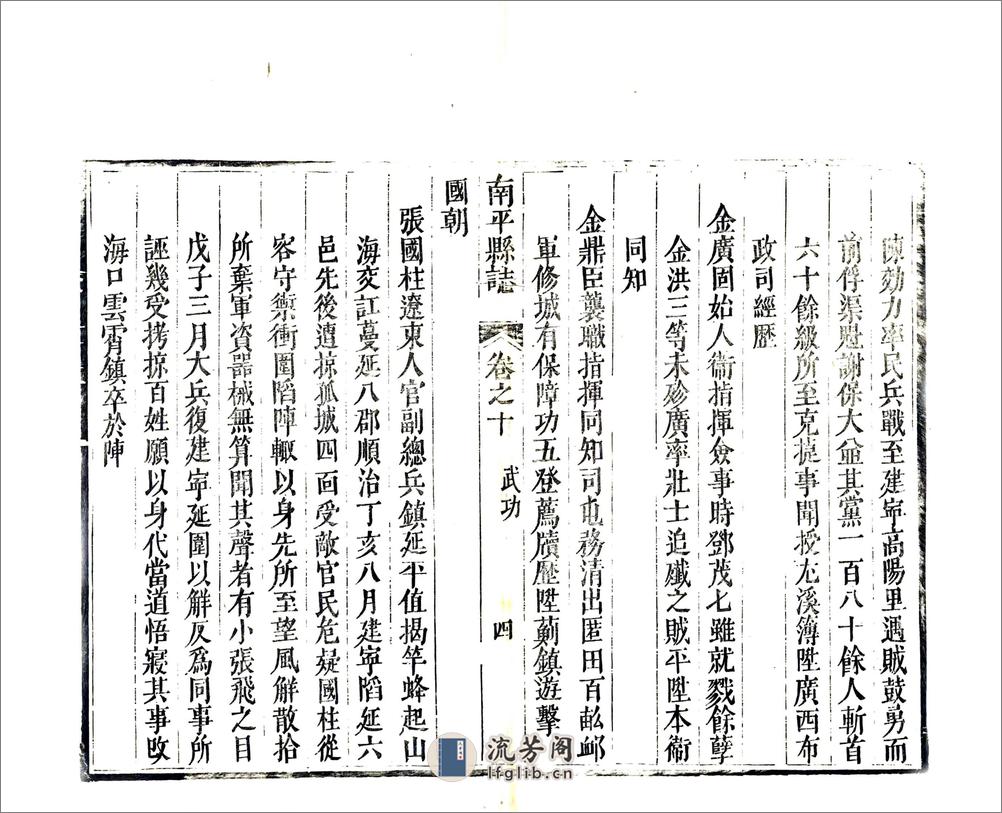 陳効力率民兵戰至建寧高陽里遇賊鼓勇而
前俘渠魁謝保大益其黨一百八十餘人斬首
六十餘級所至克捷事聞授尤溪簿陞廣西布
政司經歷
金廣固始人衞指揮僉事時鄧茂七雖就戮餘孽
金洪三等未殄廣率壯士追殲之賊平陞本衞
同知
金鼎臣襲職指揮同知司屯務清出匿田百畝邮
軍修城有保障功五登薦牘歷陞薊鎮遊擊
南平縣誌 卷之十 武功 四
國朝
張國柱遼東人官副總兵鎮延平值揭竿蜂起山
海交訌蔓延八郡順治丁亥八月建寧陷延六
邑先後遭掠孤城四面受敵官民危疑國柱從
容守禦衝圍陷陣輙以身先所至望風解散拾
所棄軍資器械無算聞其聲者有小張飛之目
戊子三月大兵復建寧延圍以解反爲同事所
誣幾受拷掠百姓願以身代當道悟寢其事改
海口雲霄鎮卒於陣
流芳阁
lfglib.cn